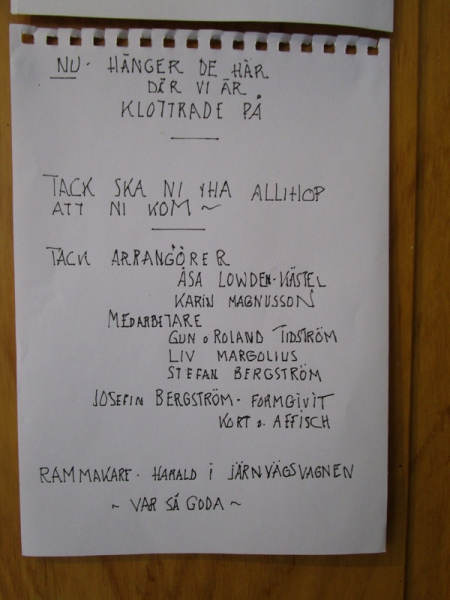 NU- HÄNGER DE HÄR
DÄR VI ÄR
KLOTTRADE PÅ
TACK SKA NI HA ALLIHOP
ATT NI KOM ~
TACK ARRANGÖRER
ÅSA LOWDEN-KÄSTEL
KARIN MAGNUSSON
MEDARBETARE
GUN o ROLAND TIDSTRÖM
LIV MARGOLIUS
STEFAN BERGSTRÖM
JOSEFIN BERGSTRÖM - FORMGIVIT
KORT o. AFFISCH
RAMMAKARE - HARALD i JÄRNVÄGSVAGNEN
~ VAR SÅ GODA ~